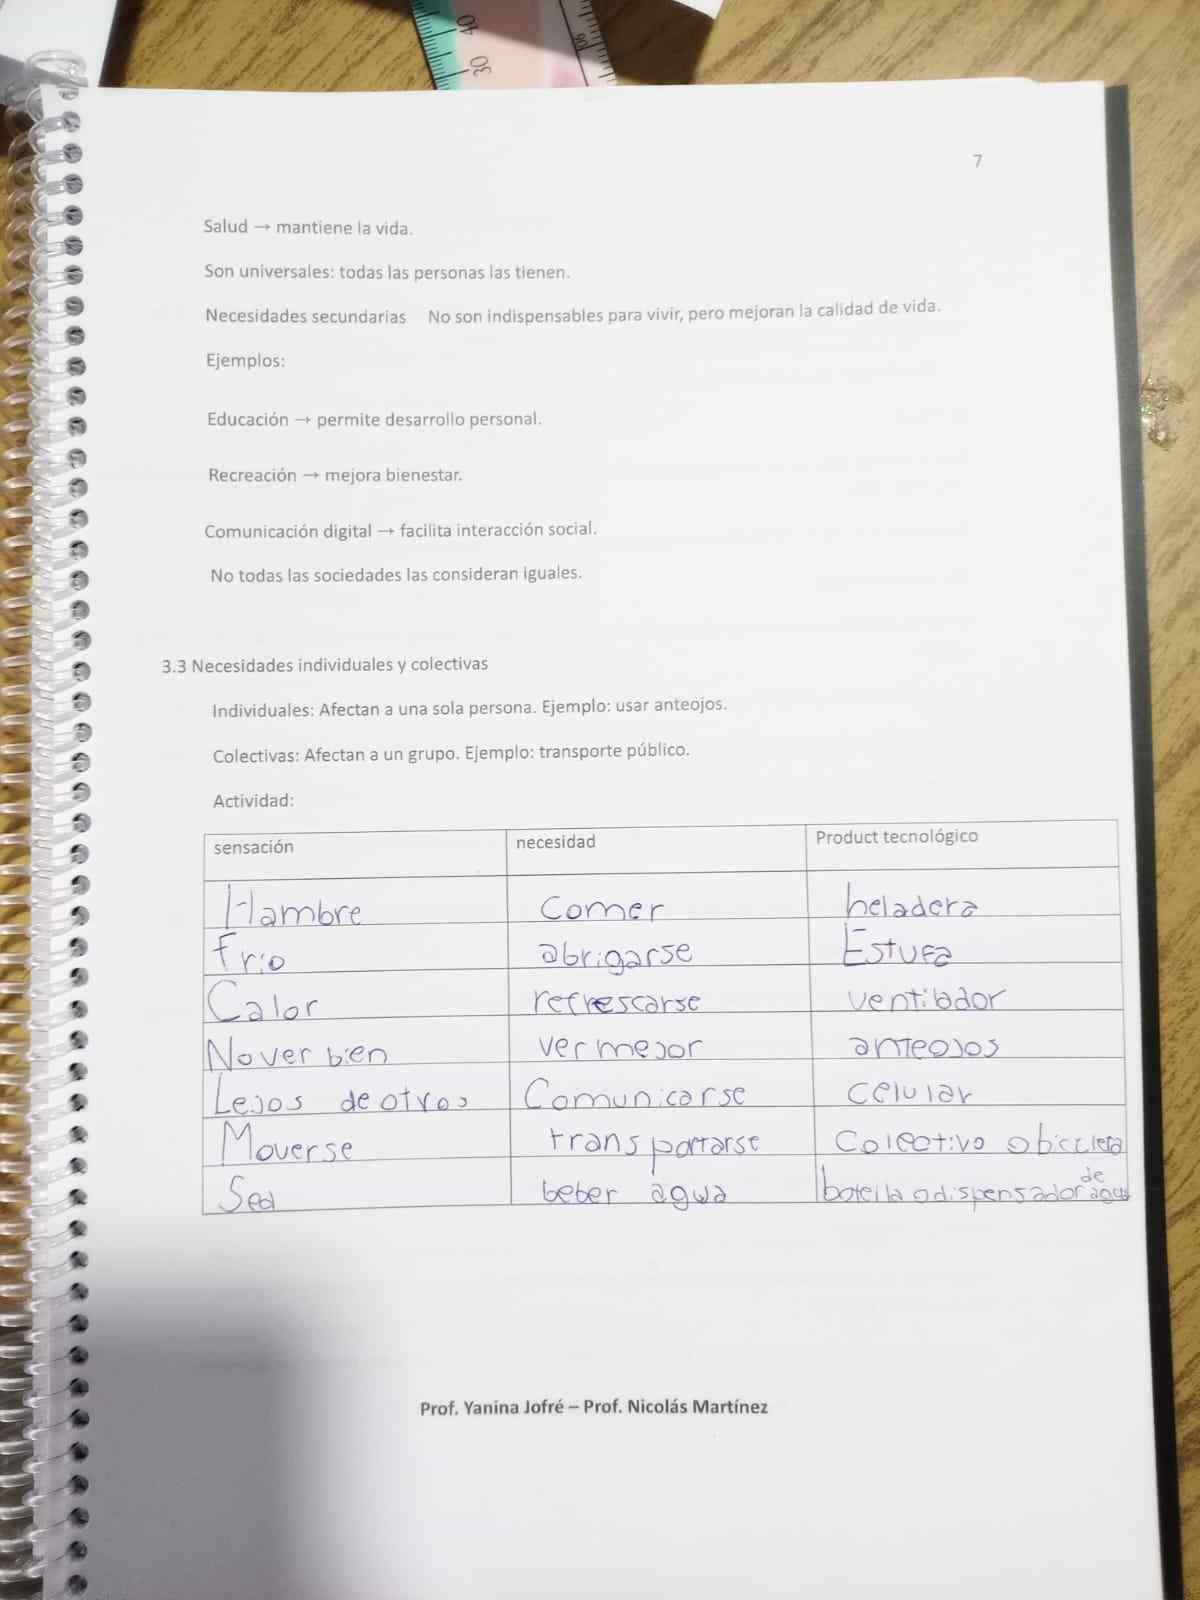 40
30
7
Salud → mantiene la vida.
Son universales: todas las personas las tienen.
Necesidades secundarias No son indispensables para vivir, pero mejoran la calidad de vida.
Ejemplos:
Educación → permite desarrollo personal.
Recreación → mejora bienestar.
Comunicación digital → facilita interacción social.
No todas las sociedades las consideran iguales.
3.3 Necesidades individuales y colectivas
Individuales: Afectan a una sola persona. Ejemplo: usar anteojos.
Colectivas: Afectan a un grupo. Ejemplo: transporte público.
Actividad:
sensación necesidad Product tecnológico
Hambre comer heladera
frio abrigarse Estufa
Calor refrescarse ventilador
No ver bien ver mejor anteojos
Lejos de otros Comunicarse celular
Moverse transportarse Colectivo o bicicleta
Sed beber agua botella o dispensador de agua
Prof. Yanina Jofré – Prof. Nicolás Martínez